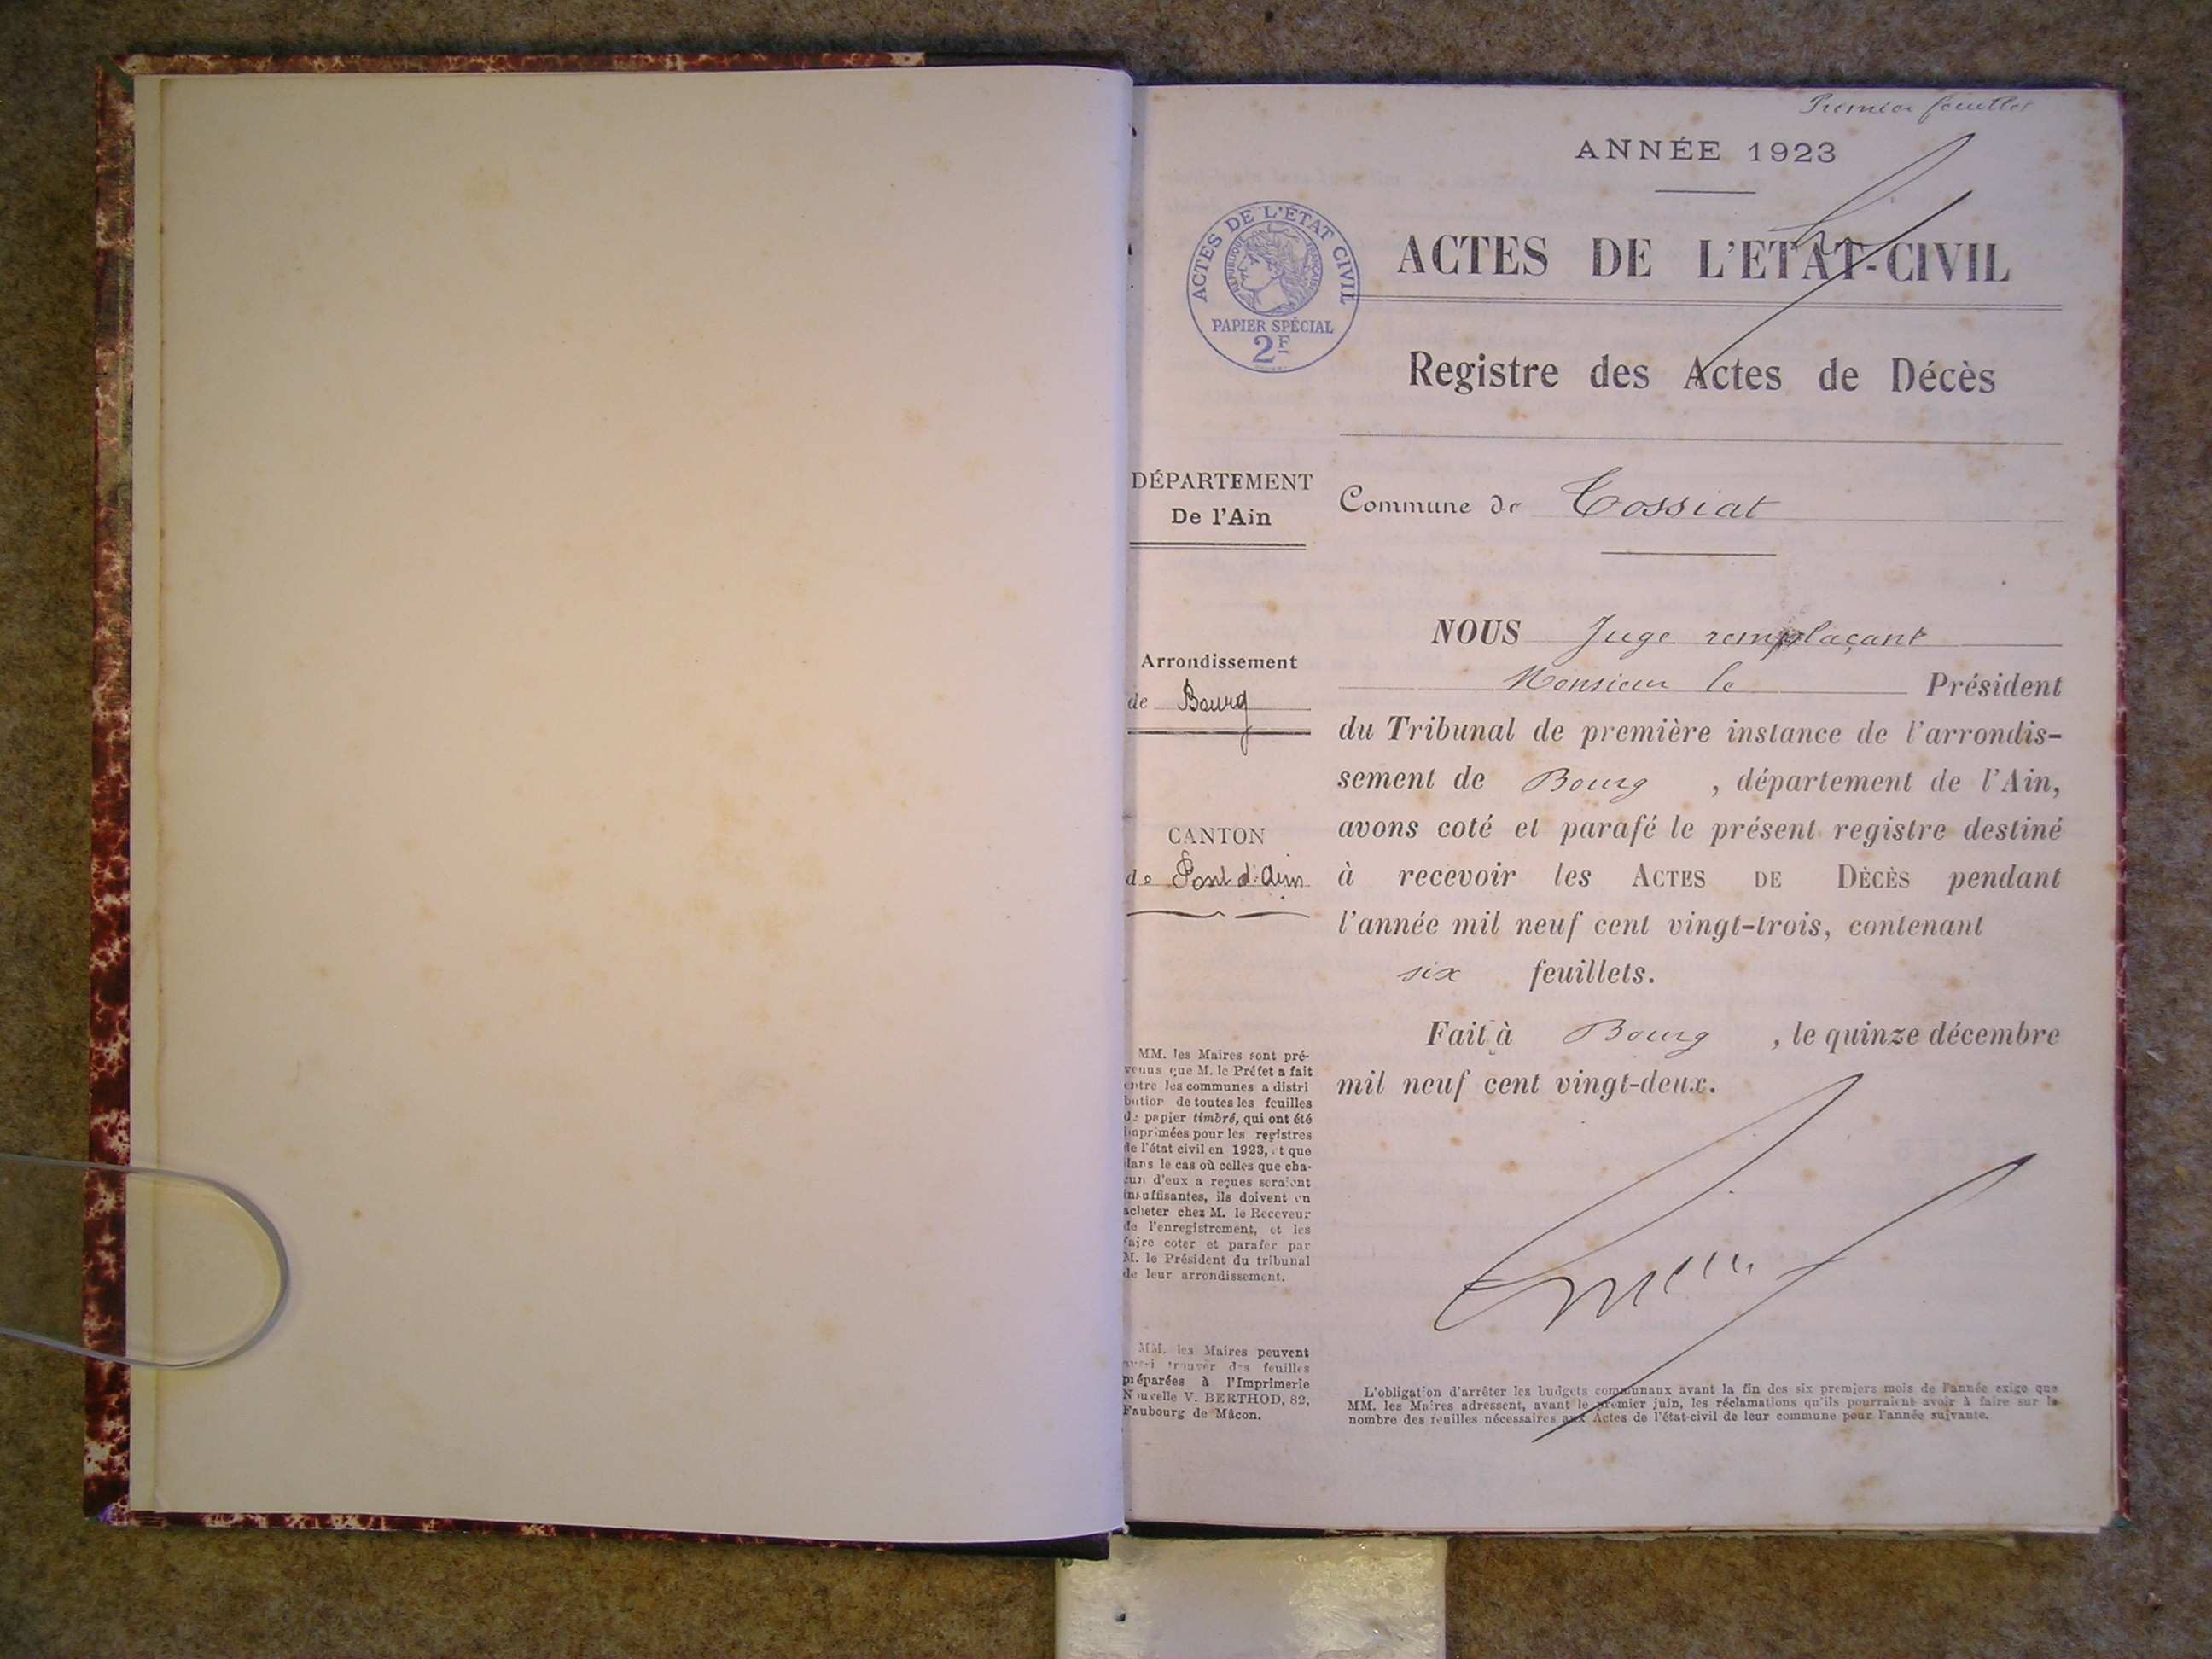 Premier feuillet
ANNÉE 1923
ACTES DE L'ÉTAT CIVIL
RÉPUBLIQUE FRANÇAISE
PAPIER SPÉCIAL
2F
ACTES DE L'ETAT-CIVIL
Registre des Actes de Décès
DÉPARTEMENT
De l'Ain
Commune de Tossiat
Arrondissement
de Bourg
CANTON
de Pont d'Ain
NOUS Juge remplaçant
Monsieur le Président
du Tribunal de première instance de l'arrondis-
sement de Bourg , département de l'Ain,
avons coté et parafé le présent registre destiné
à recevoir les ACTES DE DÉCÈS pendant
l'année mil neuf cent vingt-trois, contenant
six feuillets.
Fait à Bourg , le quinze décembre
mil neuf cent vingt-deux.
MM. les Maires sont pré-
venus que M. le Préfet a fait
entre les communes a distri
bution de toutes les feuilles
de papier timbré, qui ont été
imprimées pour les registres
de l'état civil en 1923, et que
dans le cas où celles que cha-
cun d'eux a reçues seraient
insuffisantes, ils doivent en
acheter chez M. le Receveur
de l'enregistrement, et les
faire coter et parafer par
M. le Président du tribunal
de leur arrondissement.
MM. les Maires peuvent
aussi trouver des feuilles
préparées à l'Imprimerie
Nouvelle V. BERTHOD, 82,
Faubourg de Mâcon.
L'obligation d'arrêter les budgets communaux avant la fin des six premiers mois de l'année exige que
MM. les Maires adressent, avant le premier juin, les réclamations qu'ils pourraient avoir à faire sur le
nombre des feuilles nécessaires aux Actes de l'état-civil de leur commune pour l'année suivante.